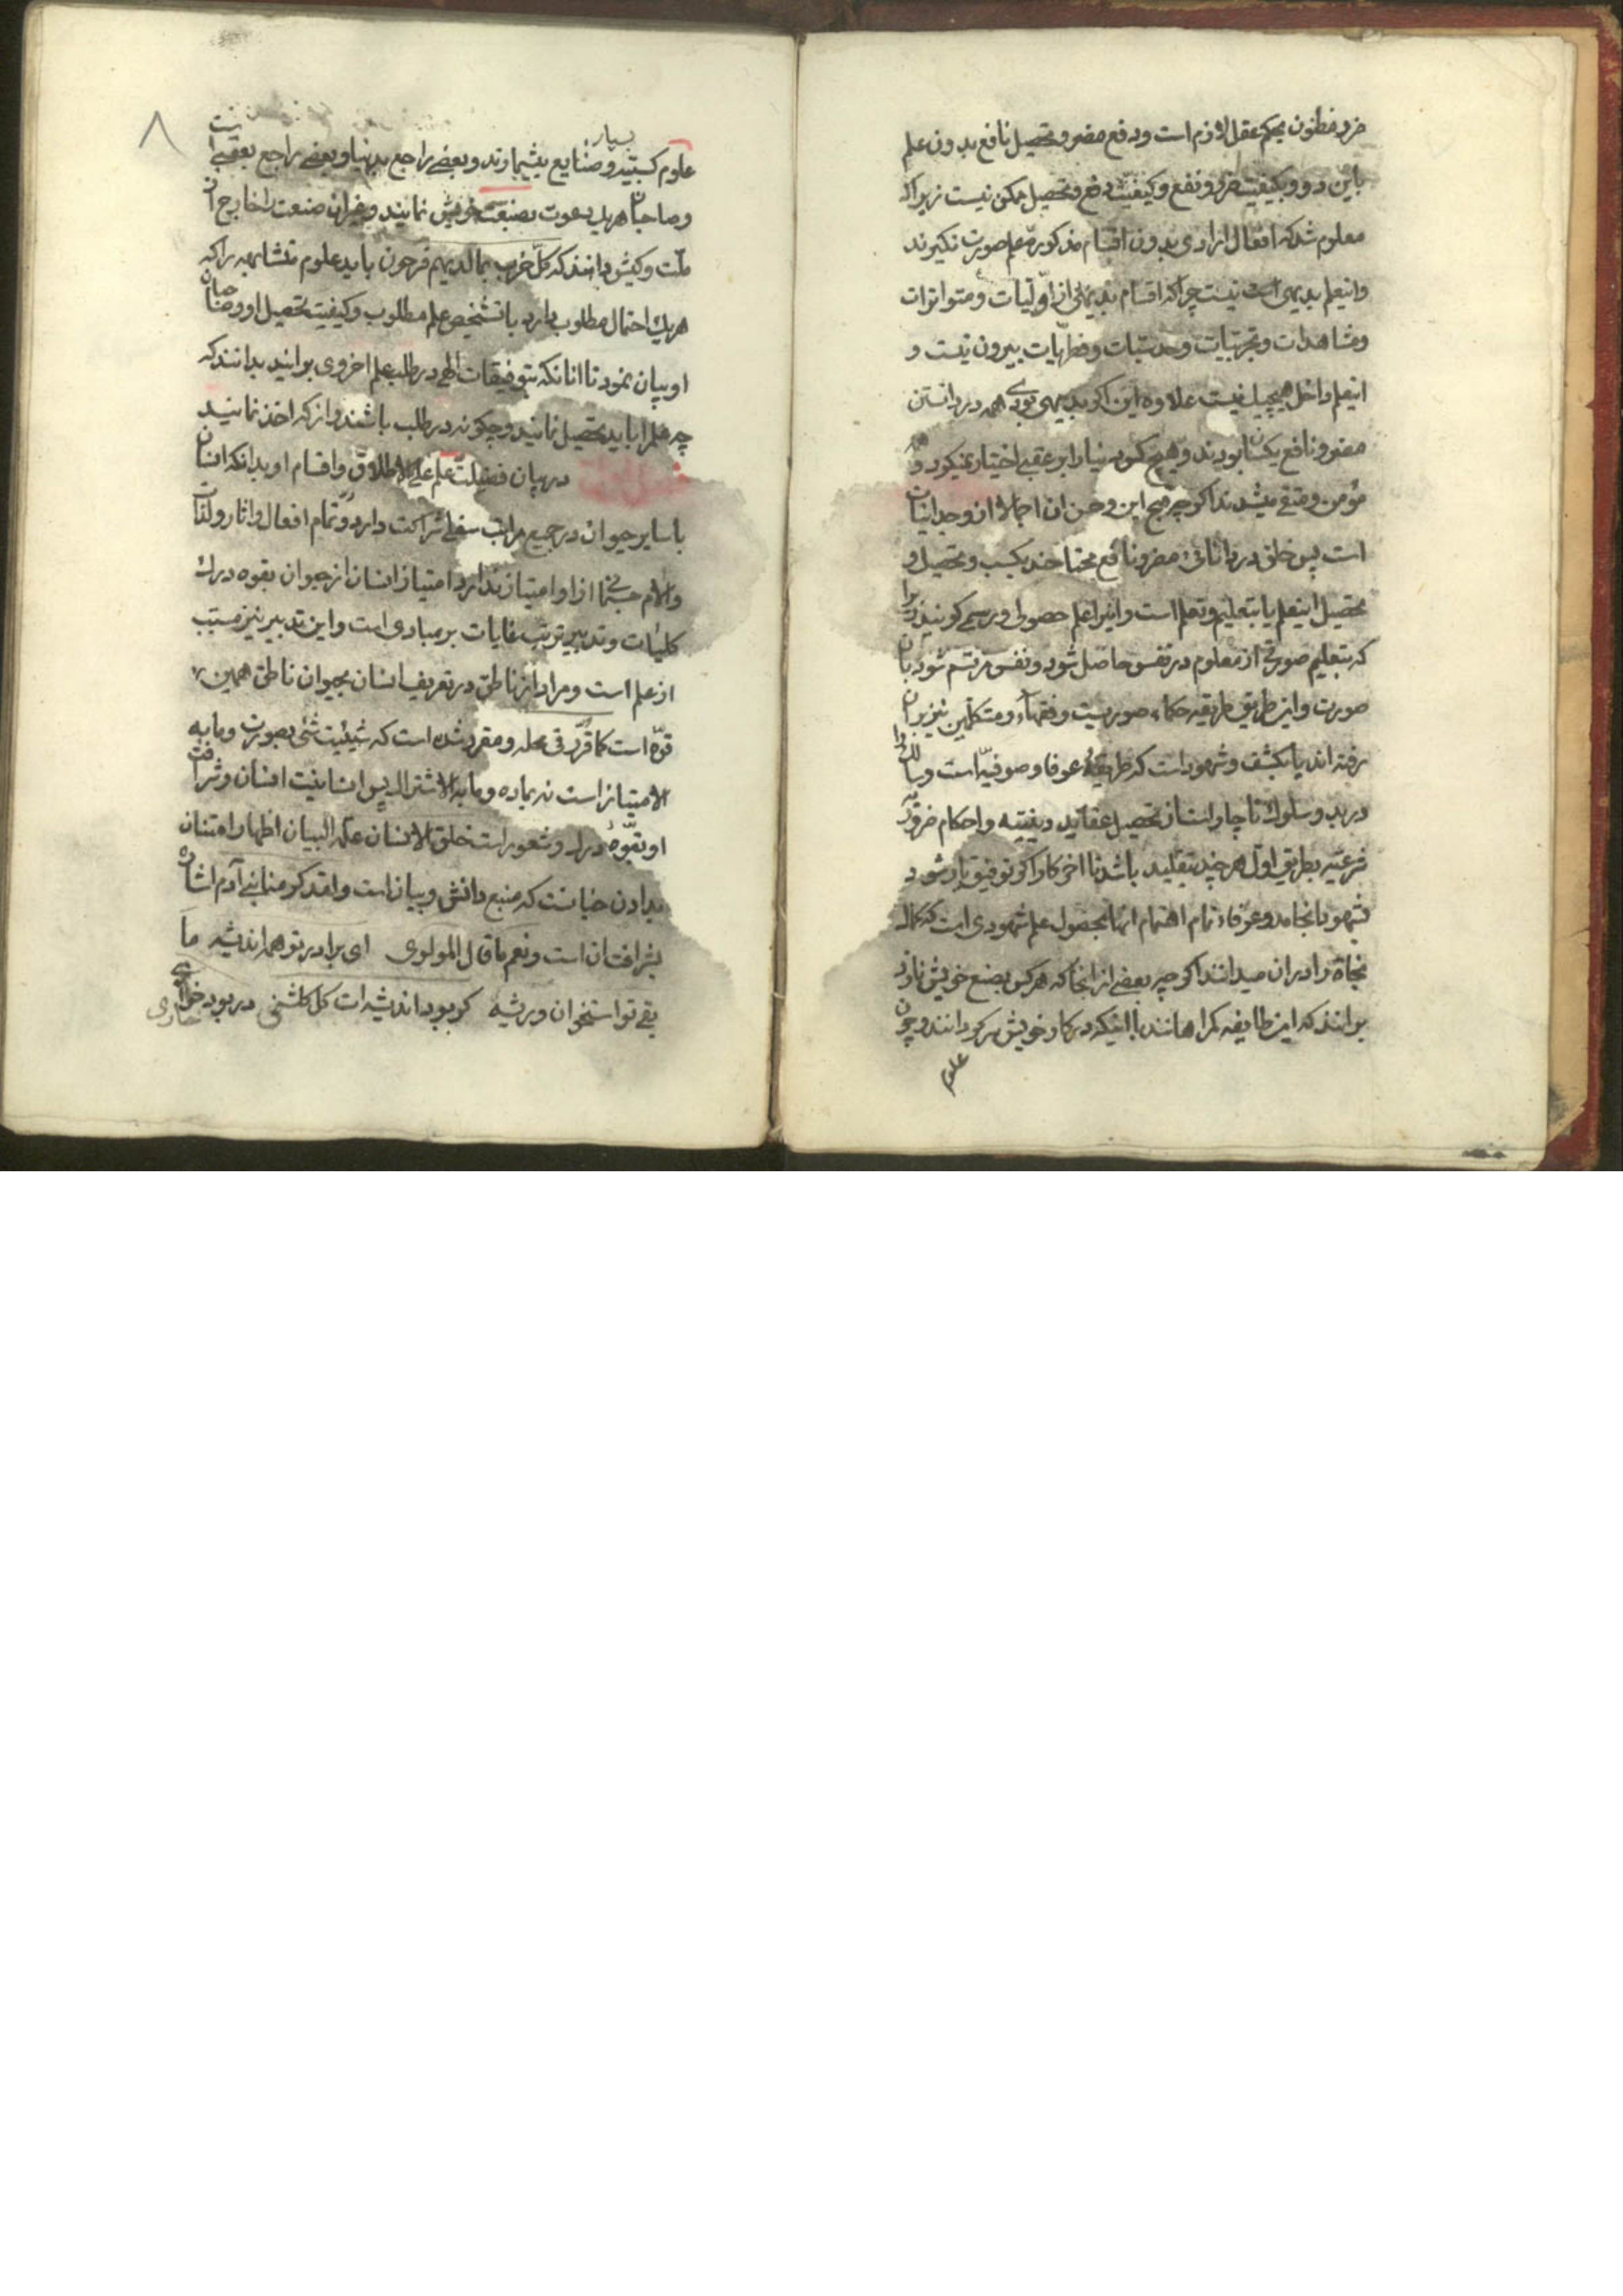 ضرر مظنون بحکم عقل لازم است و دفع مضر و تحصیل نافع بدون علم
باین دو و بکیفیت ضرر و نفع و کیفیت دفع و تحصیل ممکن نیست زیرا که
معلوم شد که افعال ارادی بدون اقسام مذکوره علم صورت نکیرند
و اینعلم بدیهی است نیست چرا که اقسام بدیهی از اولیات و متواترات
و مشاهدات و تجربیات و حدسیات و فطریات بیرون نیست و
اینعلم داخل هیچیک نیست علاوه این اکر بدیهی بودی همه در دانستن
مضر و نافع یکسان بودند و هیچ کس دنیا را بر عقبی اختیار نمیکرد و همه
مؤمن و متقی میشدند اکرچه قبح این و حسن ان اجمالا از وجدانیات
است پس خلق در دانائی مضر و نافع محتاجند بکسب و تحصیل و
تحصیل اینعلم یا بتعلیم و تعلم است و اینرا علم حصولی و رسمی کویند زیرا
که بتعلیم صورتی از معلوم در نفس حاصل شود و نفس مرتسم شود بان
صورت و این طریق طریقه حکماء صوریست و فقهاء و متکلمین نیز بر ان
رفته اند یا بکشف و شهود است که طریقهٔ عرفا و صوفیه است و سالک را
در بدو سلوک ناچار است از تحصیل عقاید دینیه و احکام ضروریه
فرعیه بطریق اول هر چند بتقلید باشد تا اخر کار اکر توفیق یار شود
بشهود انجامد و عرفاء تمام اهتمام انها بحصول علم شهودی است که کمال
نجاة را در ان میدانند اکرچه بعضی از انجا که هر کس بصنع خویش نازد
برانند که این طایفه کمراهانند با اینکه در کار خویش سرکردانند و چون
علوم
علوم کسبیه و صنایع بیشمارند و بعضی راجع بدنیا و بعضی راجع بعقبی است
بسیار
و صاحبان هر یک دعوت بصنعت خویش نمایند و غیر ان صنعت را خارج از
ملت و کیش دانند که کل حزب بما لدیهم فرحون باید علوم متشابهه را که
هر یک احتمال مطلوب دارد با تشخیص علم مطلوب و کیفیت تحصیل او و صاحبان
او بیان نمود تا انانکه بتوفیقات الهی در طلب علم اخروی برایند بدانند که
چه علم را باید تحصیل نمایند و چکونه در طلب باشند و از که اخذ نمایند
در بیان فضیلت علم علی الاطلاق و اقسام او بدانکه انسان
با سایر حیوان در جمیع مراتب سفلی شراکت دارد و تمام افعال و اثار و لذات
و الام جسمانی از او امتیاز ندارد امتیاز انسان از حیوان بقوه درک
کلیات و تدبیر ترتب غایات بر مبادی است و این تدبیر نیز مسبب
از علم است و مراد از ناطق در تعریف انسان بحیوان ناطق همین
قوه است کما قرر فی محله و مقرر شده است که شیئیت شئی بصورت و مابه
الامتیاز است نه بماده و مابه الاشتراک پس انسانیت انسان و شرافت
او بقوهٔ درک و شعور است خلق الانسان علمه البیان اظهار امتنان
بدادن جنانست که منبع دانش و بیان است و لقد کرمنا بنی آدم اشاره
بشرافت ان است و نعم ما قال المولوی ای برادر تو همه اندیشه ما
بقی تو استخوان و ریشه کر بود اندیشه ات کل کلشنی در بود خاری